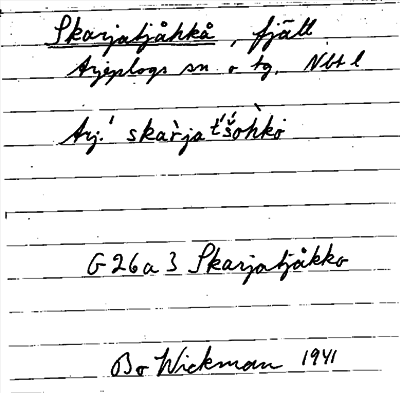 Skarjatjåhkå, fjäll
Arjeplogs sn o tg. Nbt l
Arj. skar̀ja t́šohkò
G 26 a 3 Skarjatjåkko
Bo Wickman 1941